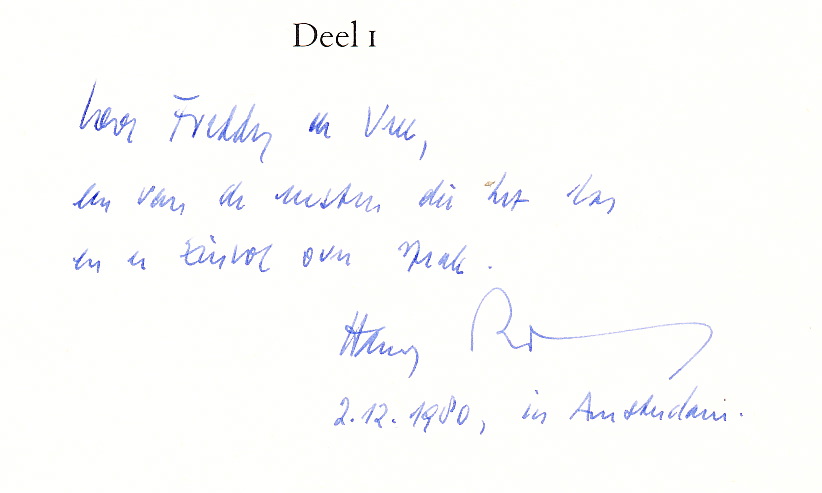 Deel 1
Voor Freddy de Vree,
een van de eersten die het las
en er zinvol over sprak.
Harry
2.12.1980, in Amsterdam.